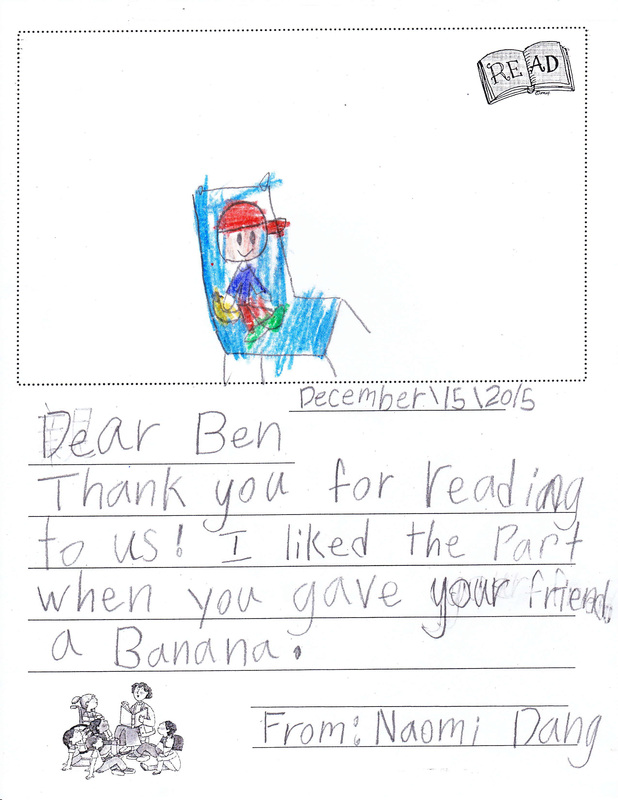 READ
December\15\2015
Dear Ben
Thank you for reading
to us! I liked the Part
when you gave your friend
a Banana.
From: Naomi Dang